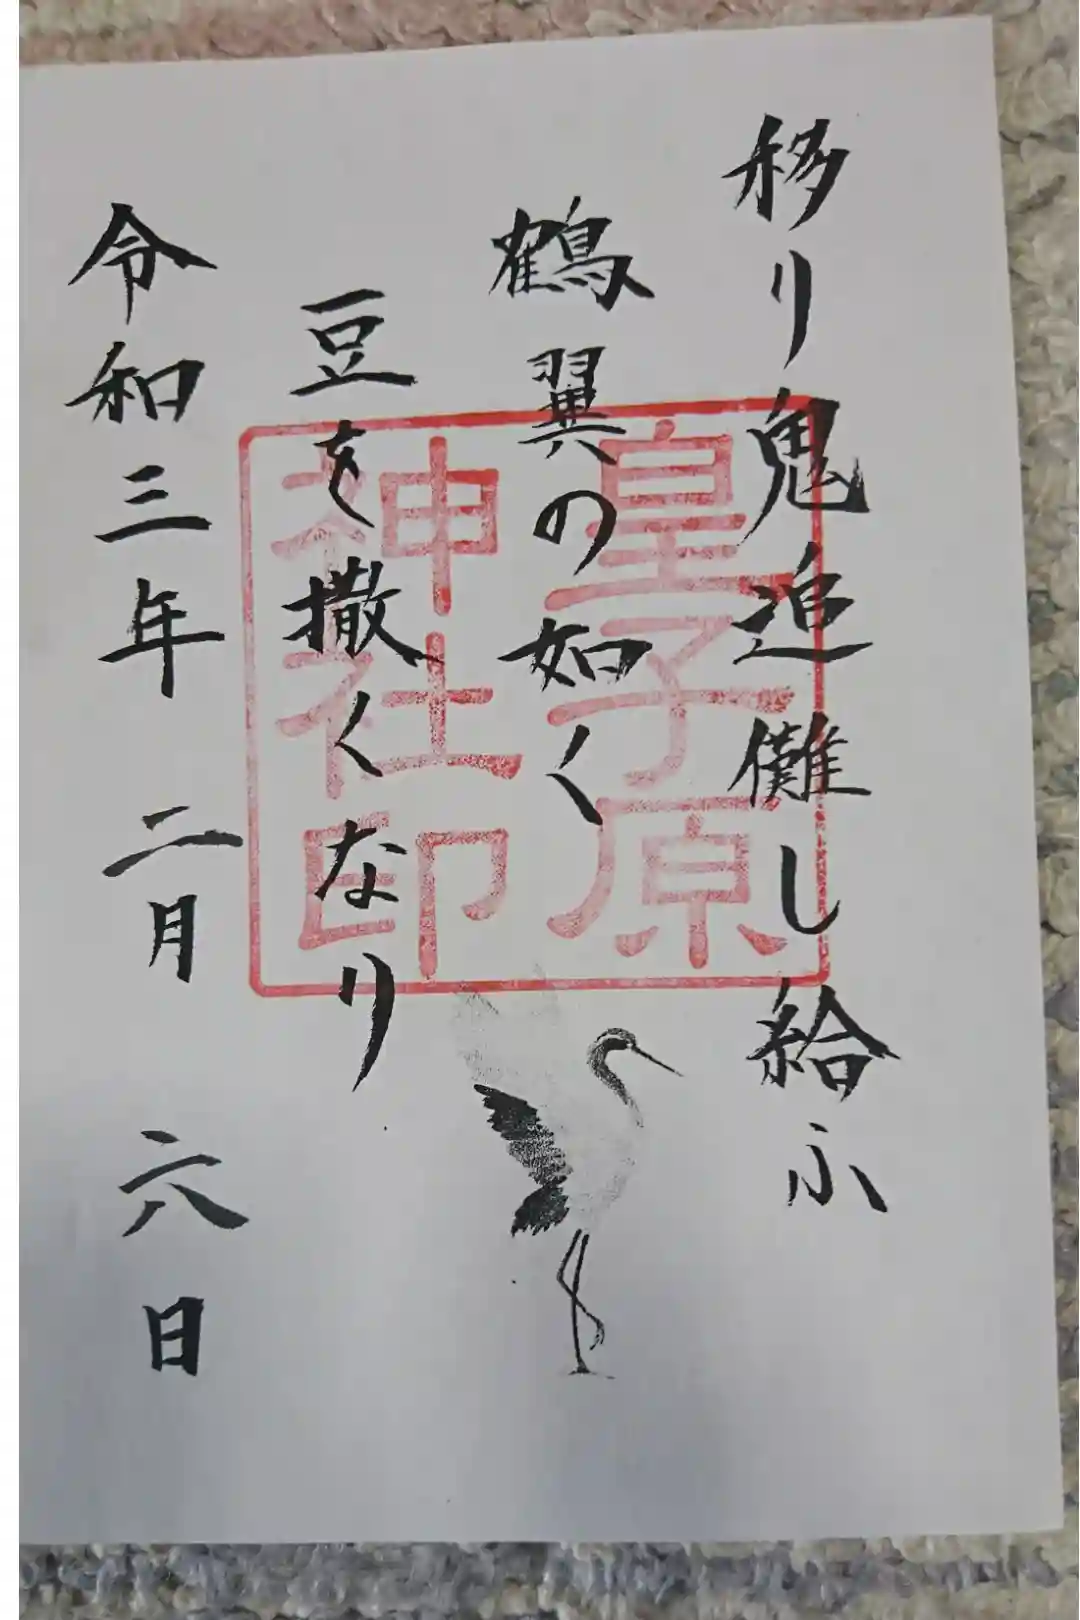 移り鬼追儺し給ふ
鶴翼の如く
豆を撒くなり
令和三年二月六日
皇子原
神社印